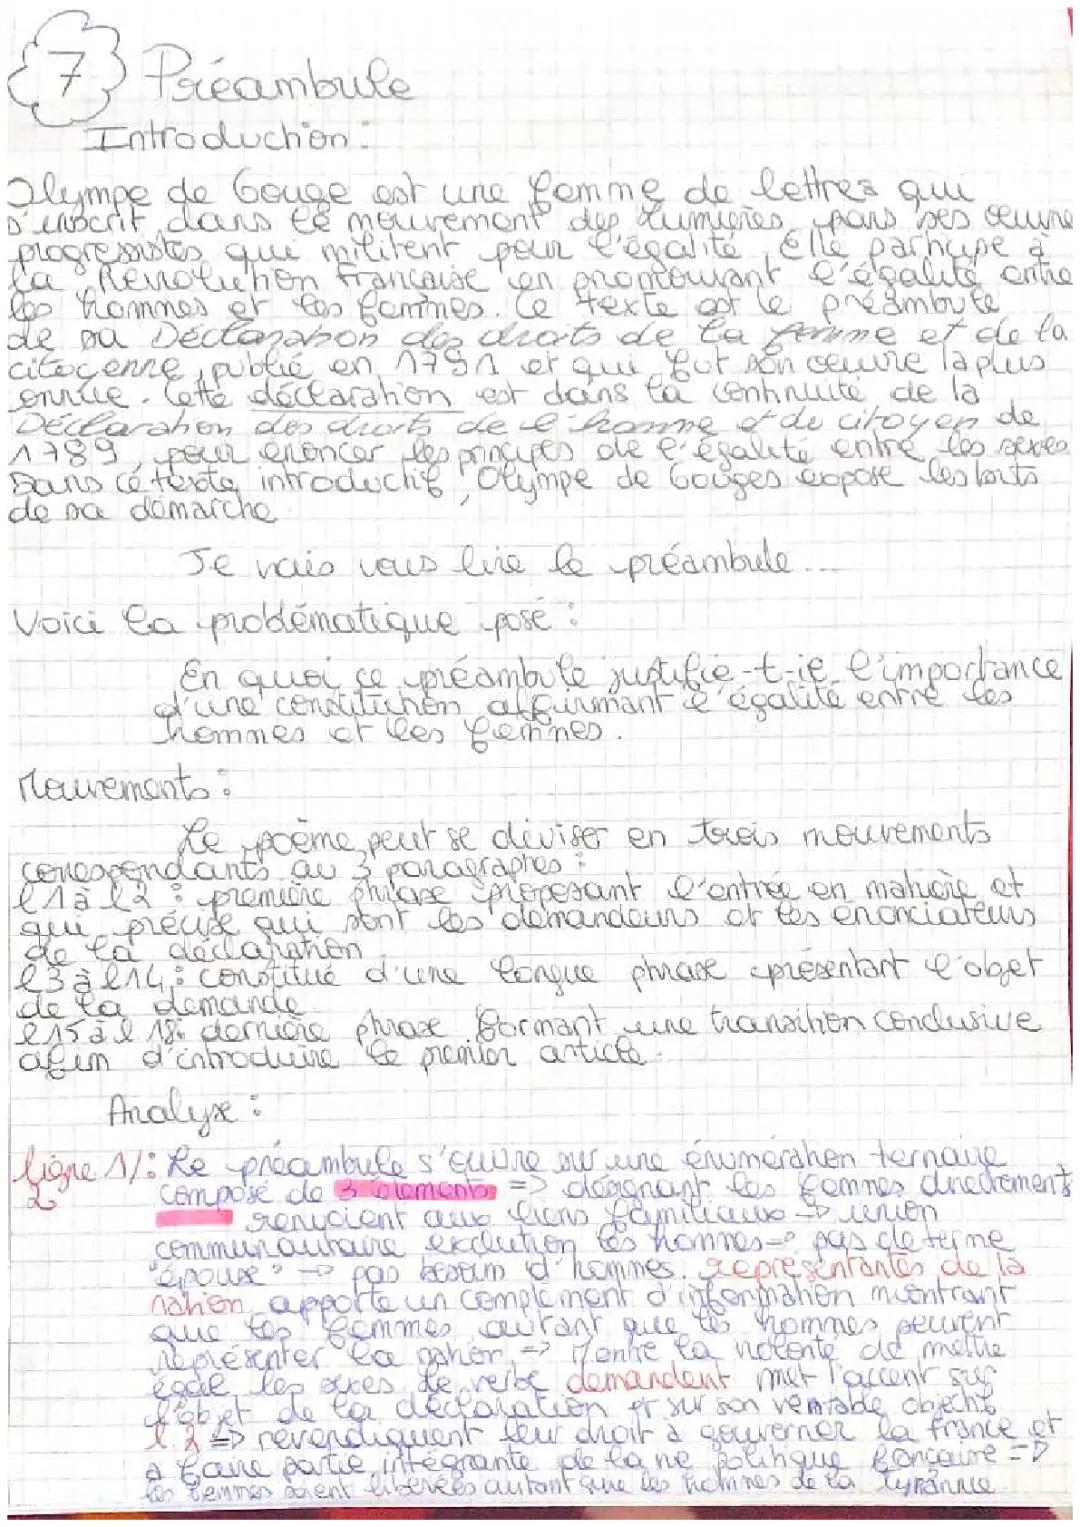 7 Préambule
Introduction :
Olympe de Gouge est une femme de lettres qui
s'inscrit dans le mouvement des lumières, dans ses œuvre
progressistes qui militent pour l'égalité. Elle participe à
la Révolution Française en promouvant l'égalité entre
les hommes et les femmes. Ce texte est le préambule
de sa Déclaration des droits de la femme et de la
citoyenne, publié en 1791 et qui fut son œuvre la plus
connue. Cette déclaration est dans la continuité de la
Déclaration des droits de l'homme et du citoyen de
1789, pour énoncer les principes de l'égalité entre les sexes.
Dans ce texte introductif, Olympe de Gouges expose les buts
de sa démarche
Je vais vous lire le préambule ...
Voici la problématique posé :
En quoi ce préambule justifie-t-il l'importance
d'une constitution affirmant l'égalité entre les
hommes et les femmes.
Mouvements :
Le poème peut se diviser en trois mouvements
correspondants au 3 paragraphes :
l1 à l2 : première phrase proposant l'entrée en matière et
qui précise qui sont les demandeurs et les énonciateurs
de la déclaration
l3 à l14 : constitué d'une longue phrase présentant l'objet
de la demande
l15 à l 18 : dernière phrase formant une transition conclusive
afin d'introduire le premier article.
Analyse :
ligne 1/ : Le préambule s'ouvre sur une énumération ternaire
2 composé de 3 éléments => désignant les femmes directement
renvoient aux liens familiaux -> union
communautaire exclution les hommes => pas de terme
"épouse" -> pas besoin d'hommes. représentantes de la
nation apporte un complément d'information montrant
que les femmes autant que les hommes peuvent
représenter la nation => Montre la volonté de mettre
égale les sexes. Le verbe demandent met l'accent sur
l'objet de la déclaration et sur son véritable objectif
l.2 => revendiquent leur droit à gouverner la france et
à faire partie intégrante de la vie politique française =>
les femmes soient libérées autant que les hommes de la tyrannie